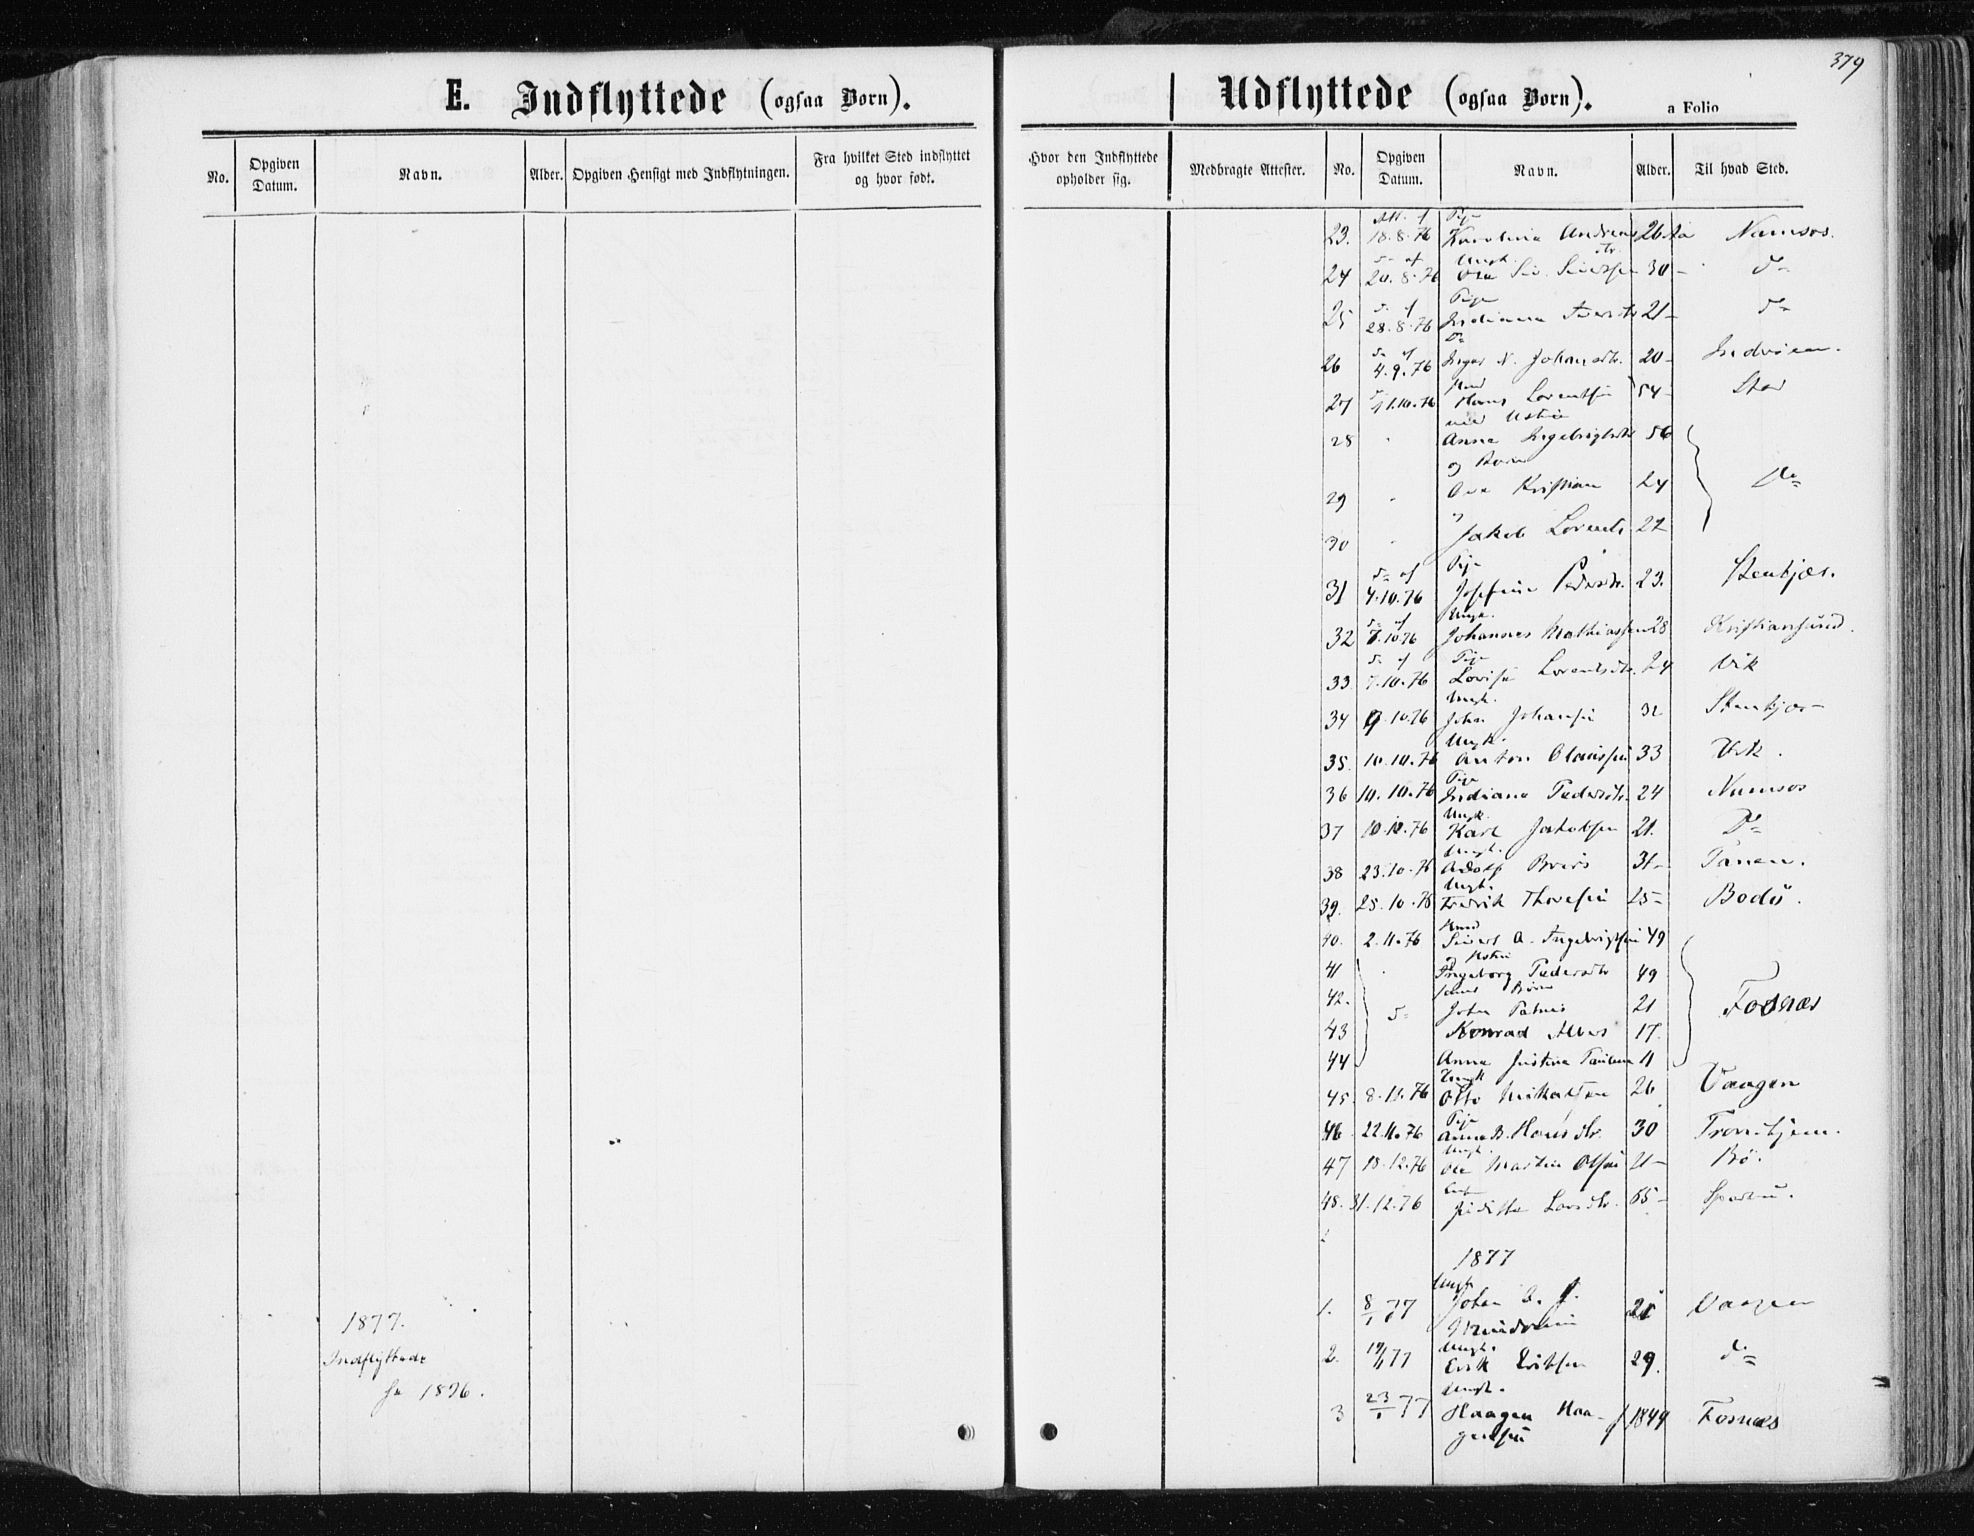 379
E. Indflyttede (ogsaa Børn).
Udflyttede (ogsaa Børn). a Folio
No. Opgiven Datum. Navn. Alder. Opgiven Hensigt med Indflytningen. Fra hvilket Sted indflyttet og hvor født.
Hvor den Indflyttede opholder sig. Medbragte Attester. No. Opgiven Datum. Navn. Alder. Til hvad Sted.
Att. af Pige
23. 18.8.76 Karolina Andreas dtr. 26 Namsos.
Ungk.
24 20.8.76 30 - do
Pige
25 28.8.76 Indiana 21 - do
do
26 4.9.76 Inger N. Johansdtr. 20 - Inderøen.
27 11.10.76 Hans Lorentsen 54 - Stod
med Hustru
28 Anna Ingebrigtsdtr 56
og Børn
29 Ole Kristian 24 Do
30 Jakob Lorents 22
do af Pige
31 4.10.76 Josefine Pedersdtr. 23. Stenkjær.
do af Ungk.
32 7.10.76 Johannes Mathiassen 28 Kristiansund.
do af Pige
33 7.10.76 Lovise Lorentsdtr. 24 Vik
Ungk.
34 9.10.76 John Johansen 32 Stenkjær
Ungk.
35. 10.10.76 Anton Olaussen 33 Vik.
Pige
36 10.10.76 Indiana Pedersdtr. 24 Namsos
Ungk.
37 10.10.76 Karl Jakobsen 21. Do
Ungk.
38 23.10.76 Adolf 31 - Tanen.
Ungk.
39. 25.10.76 Fredrik Thoresen 25 - Bodø.
40. 2.11.76 Sivert A. Ingebrigtsen 49
Hustru
41 Ingeborg Pedersdtr 49
samt Børn
42. do John 21 Fosnæs
43 Konrad 17.
44 Anna Justina Pauline 11
Ungk
45. 8.11.76 Otto Mikalsen 26 Vaagen
Pige
46. 22.11.76 Anna B. Hansdtr. 30 Tronhjem.
Ungk.
47 18.12.76 Ole Martin Olsen 21 - Bø.
48. 31.12.76 Larsdtr. 65 -
1877
Ungk.
1. 8/1 77 Johan 21 Vaagen
1877.
Ungk.
2. 19/1 77 Erik Eriksen 29. do
Indflyttede
se 1876.
Ungk.
3 23/1 77 Haagen Haa- f 1849 Fosnæs
gensen